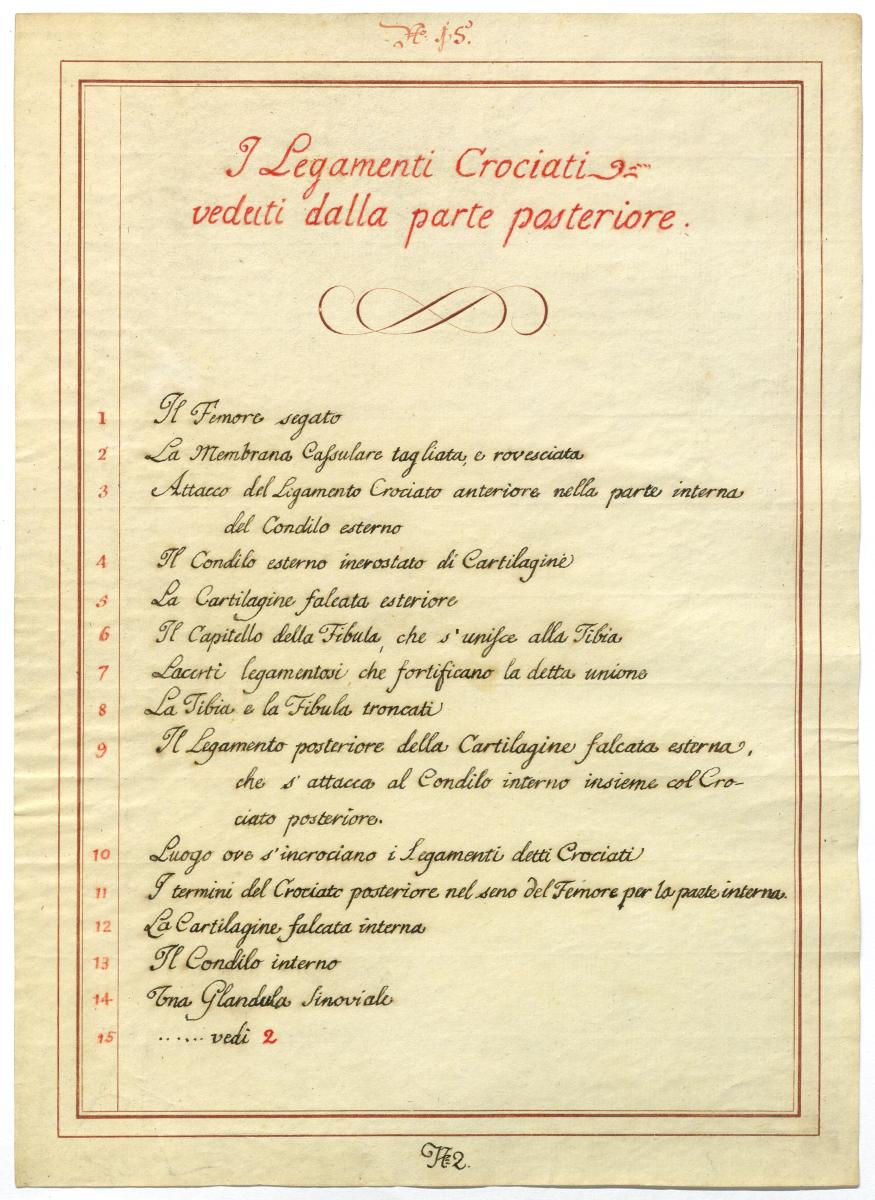 N.º 15.
I Legamenti Crociati
veduti dalla parte posteriore.
1 Il Femore segato
2 La Membrana Caſsulare tagliata, e rovesciata
3 Attacco del Ligamento Crociato anteriore nella parte interna
del Condilo esterno
4 Il Condilo esterno incrostato di Cartilagine
5 La Cartilagine falcata esteriore
6 Il Capitello della Fibula, che s'uniſce alla Tibia
7 Lacerti legamentosi, che fortificano la detta unione
8 La Tibia e la Fibula troncati
9 Il Legamento posteriore della Cartilagine falcata esterna,
che s'attacca al Condilo interno insieme col Cro-
ciato posteriore.
10 Luogo ove s'incrociano i Legamenti detti Crociati
11 I termini del Crociato posteriore nel seno del Femore per la parte interna.
12 La Cartilagine falcata interna
13 Il Condilo interno
14 Una Glandula Sinoviale
15 ...... vedi 2